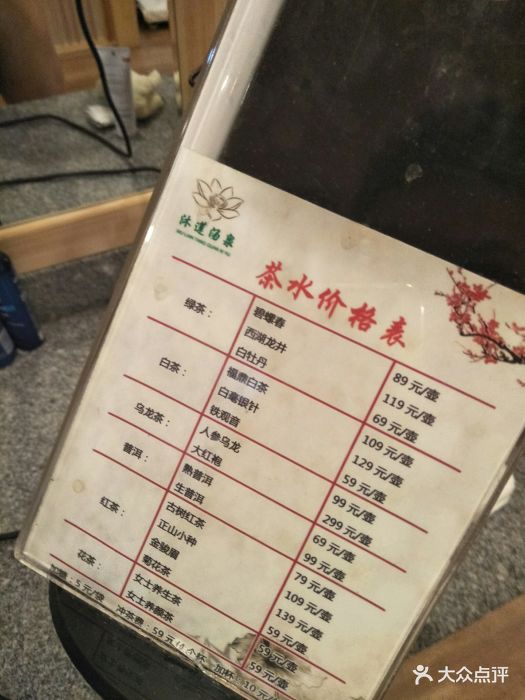 沐莲汤泉
茶水价格表
绿茶： 碧螺春 89 元/壶
西湖龙井 119 元/壶
白茶： 白牡丹 69 元/壶
福鼎白茶 109 元/壶
白毫银针 129 元/壶
乌龙茶： 铁观音 59 元/壶
人参乌龙 99 元/壶
大红袍 299 元/壶
普洱： 熟普洱 69 元/壶
生普洱 99 元/壶
红茶： 古树红茶 79 元/壶
正山小种 109 元/壶
金骏眉 139 元/壶
花茶： 菊花茶 59 元/壶
女士养生茶 59 元/壶
女士养颜茶 59 元/壶
：5 元/袋 冲茶费：59 元 个杯 加杯 10 元/
大众点评